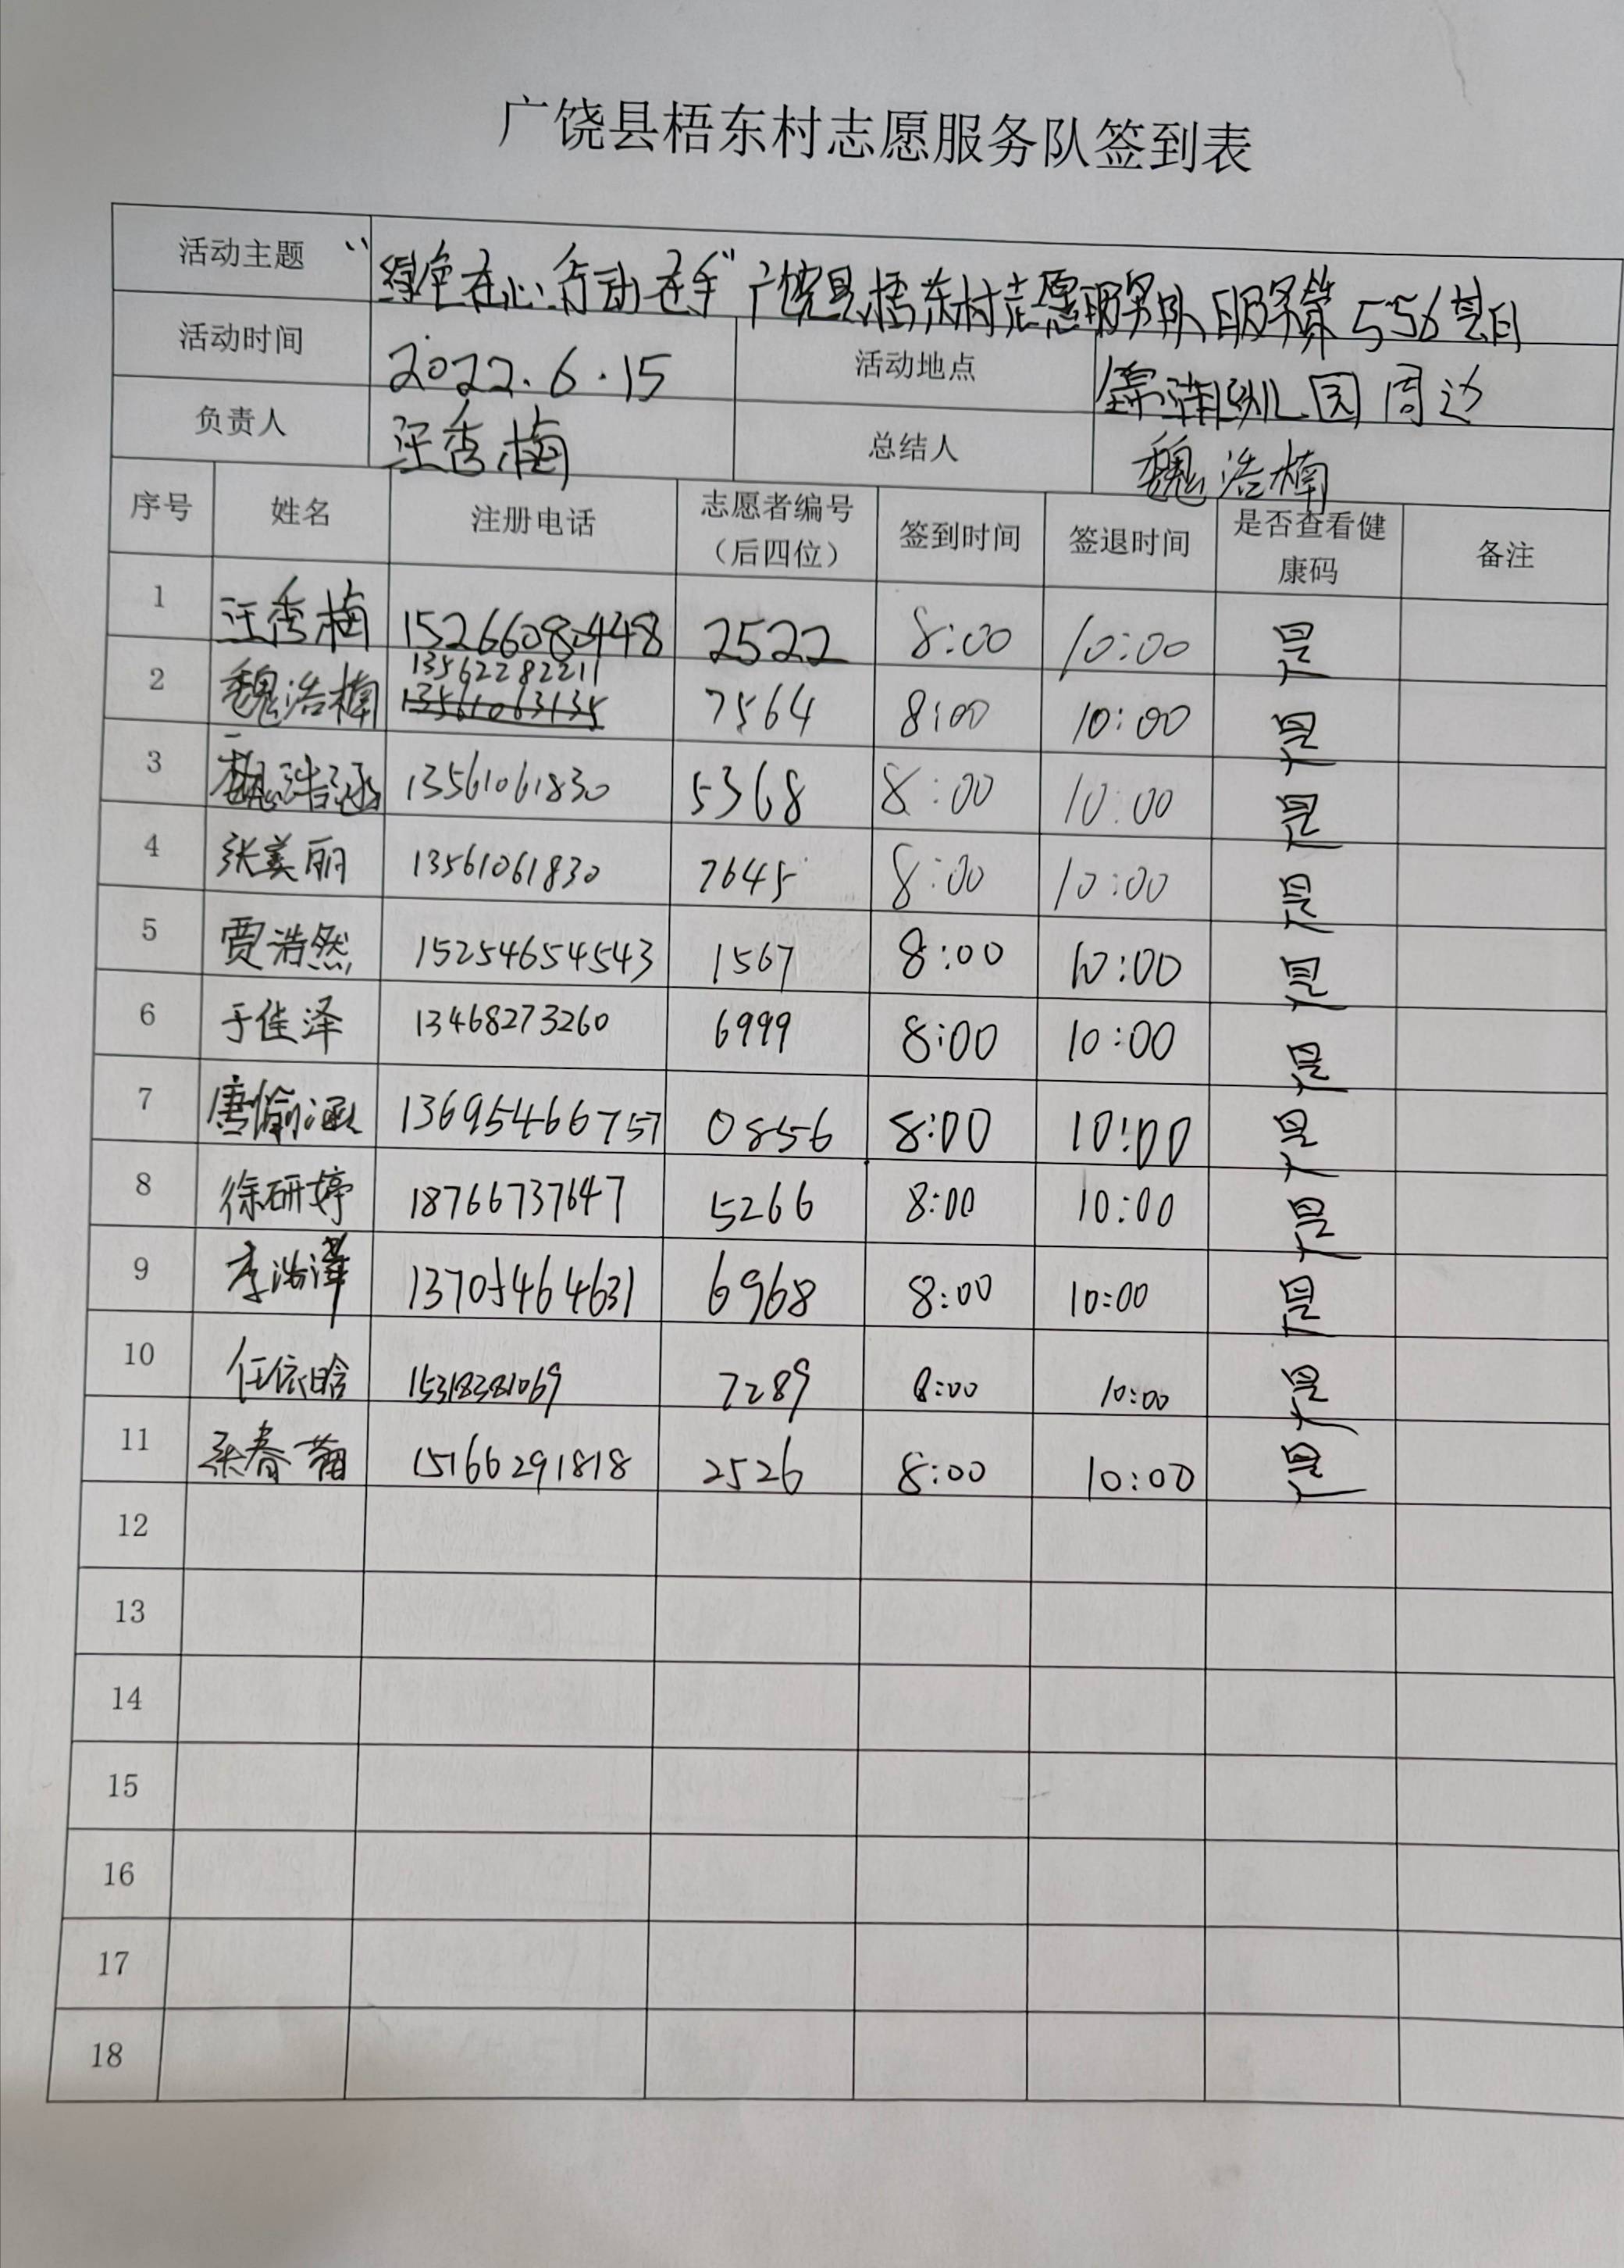 广饶县梧东村志愿服务队签到表
活动主题 “绿色在心、行动在手”广饶县梧东村志愿服务队服务第556期
活动时间 2022.6.15 活动地点 锦湖幼儿园周边
负责人 汪秀梅 总结人 魏浩楠
序号 姓名 注册电话 志愿者编号（后四位） 签到时间 签退时间 是否查看健康码 备注
1 汪秀梅 15266080448 2522 8:00 10:00 是
13562282211
2 魏浩楠 13561063135 7564 8:00 10:00 是
3 魏浩涵 13561061830 5368 8:00 10:00 是
4 张美丽 13561061830 7645 8:00 10:00 是
5 贾浩然 15254654543 1567 8:00 10:00 是
6 于佳泽 13468273260 6999 8:00 10:00 是
7 唐愉涵 13695466757 0856 8:00 10:00 是
8 徐研婷 18766737647 5266 8:00 10:00 是
9 李浩泽 13705464631 6968 8:00 10:00 是
10 任依晗 15318381069 7289 8:00 10:00 是
11 张春菊 15166291818 2526 8:00 10:00 是
12
13
14
15
16
17
18